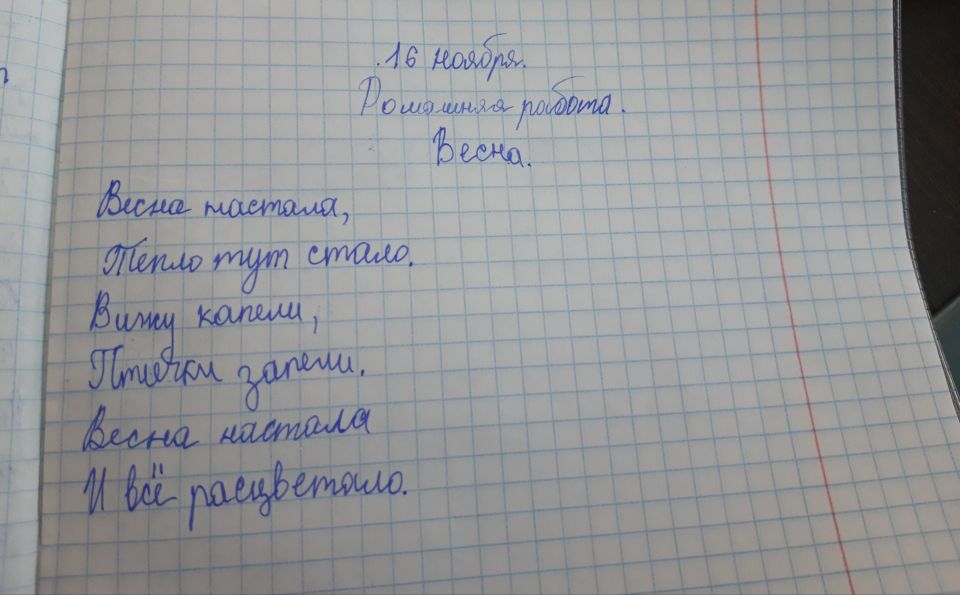 16 ноября.
Домашняя работа.
Весна.
Весна настала,
Тепло тут стало.
Вижу капели,
Птички запели.
Весна настала
И всё расцветало.